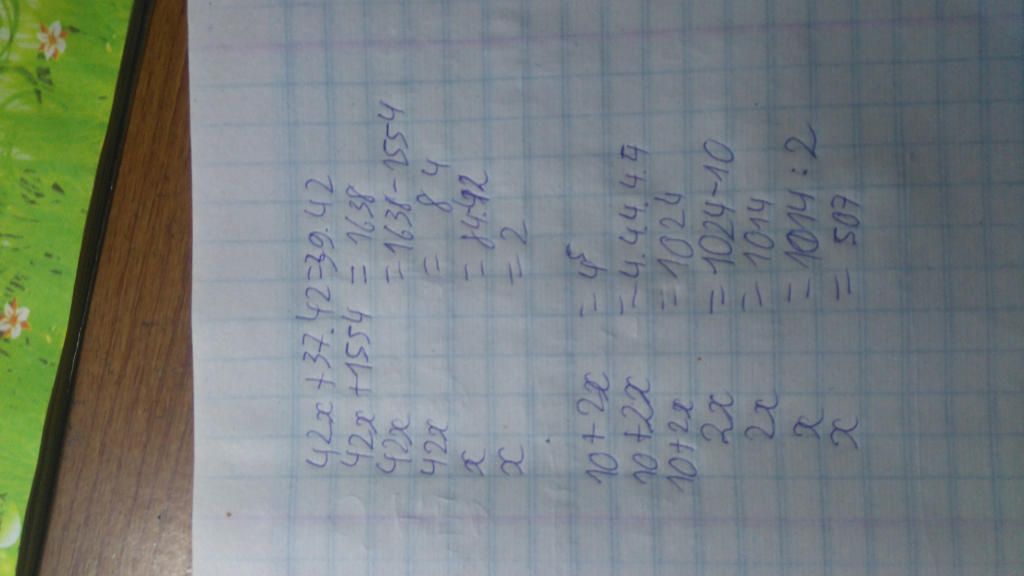 42x+37.42=39.42
42x+1554 = 1638
42x = 1638-1554
42x = 84
x = 84:42
x = 2
10+2x = 4⁵
10+2x = 4.4.4.4.4
10+2x = 1024
2x = 1024-10
2x = 1014
x = 1014:2
x = 507